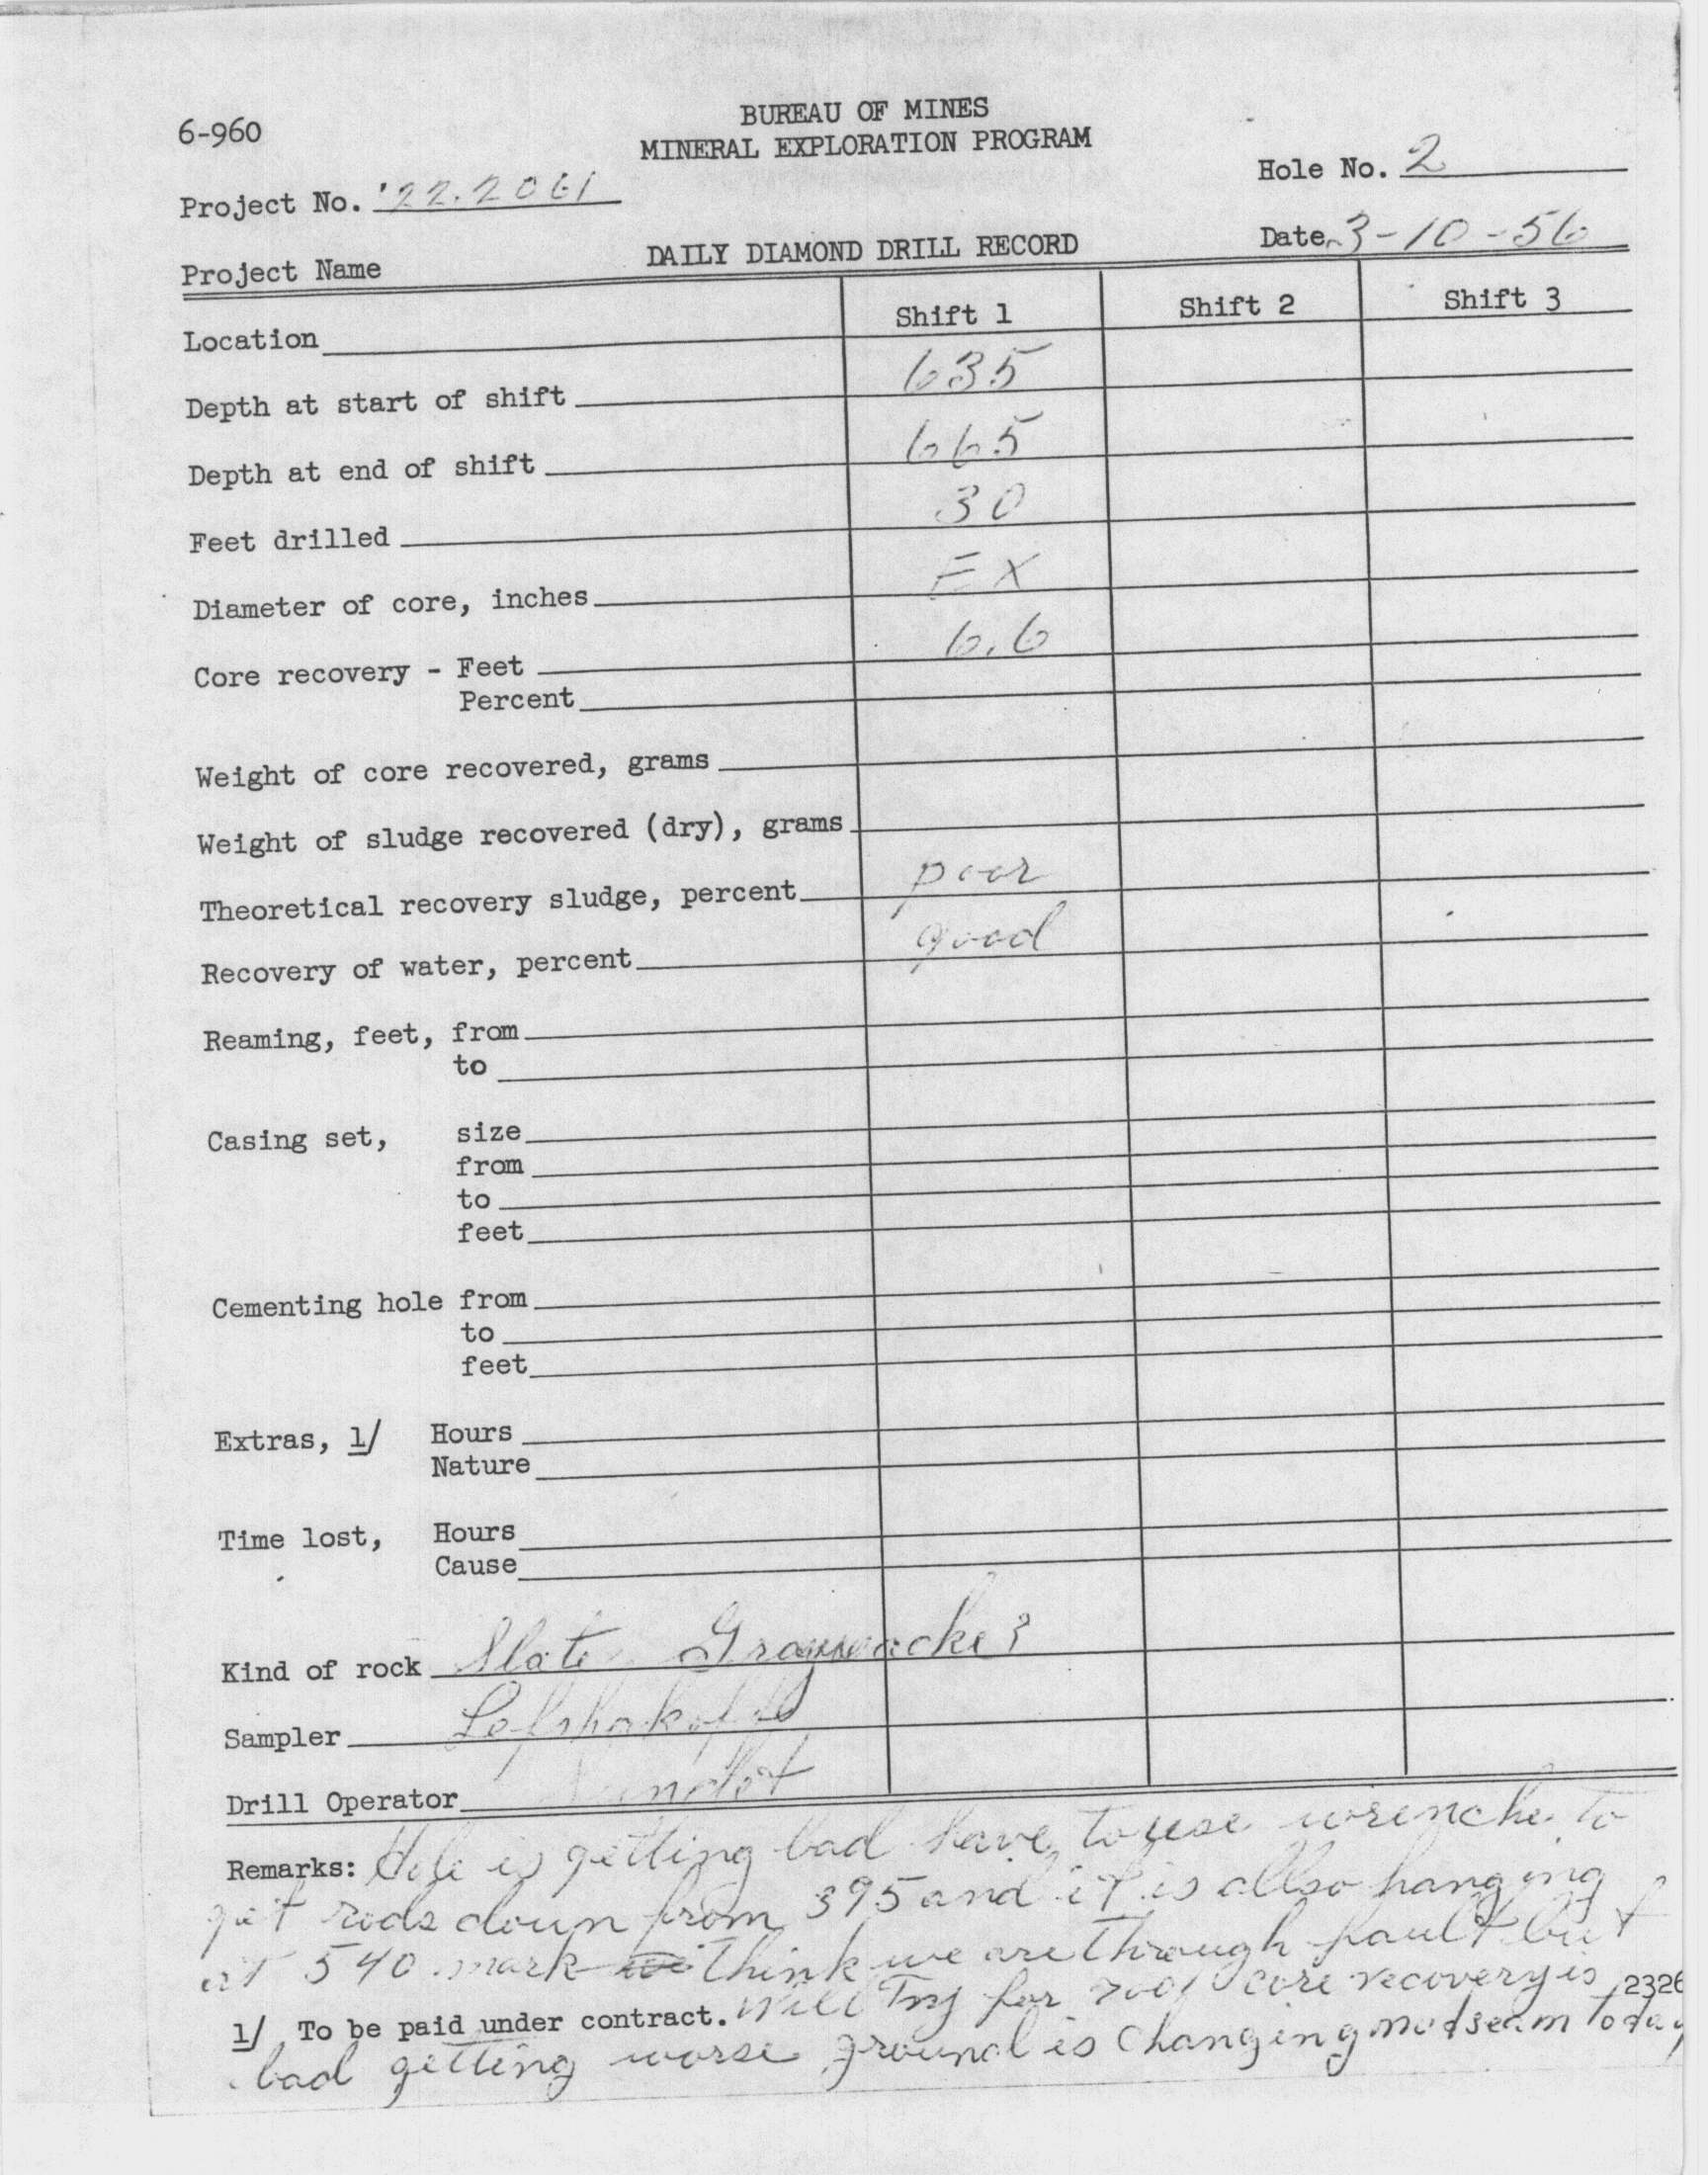 6-960
BUREAU OF MINES
MINERAL EXPLORATION PROGRAM
Hole No. 2
Project No. 22.2061
Date 3-10-56
DAILY DIAMOND DRILL RECORD
Project Name
Shift 1 Shift 2 Shift 3
Location
Depth at start of shift 635
Depth at end of shift 665
Feet drilled 30
Diameter of core, inches EX
Core recovery - Feet 6.6
Percent
Weight of core recovered, grams
Weight of sludge recovered (dry), grams
Theoretical recovery sludge, percent poor
Recovery of water, percent good
Reaming, feet, from
to
Casing set, size
from
to
feet
Cementing hole from
to
feet
Extras, 1/ Hours
Nature
Time lost, Hours
Cause
Kind of rock Slate Graywacke?
Sampler
Drill Operator
Remarks: Hole is getting bad have to use wrenche to
get rods down from 395 and it is allso hanging
at 540 mark think we are through fault but
will Try for 700' core recovery is 2326
1/ To be paid under contract.
bad getting worse ground is changing mudseam today